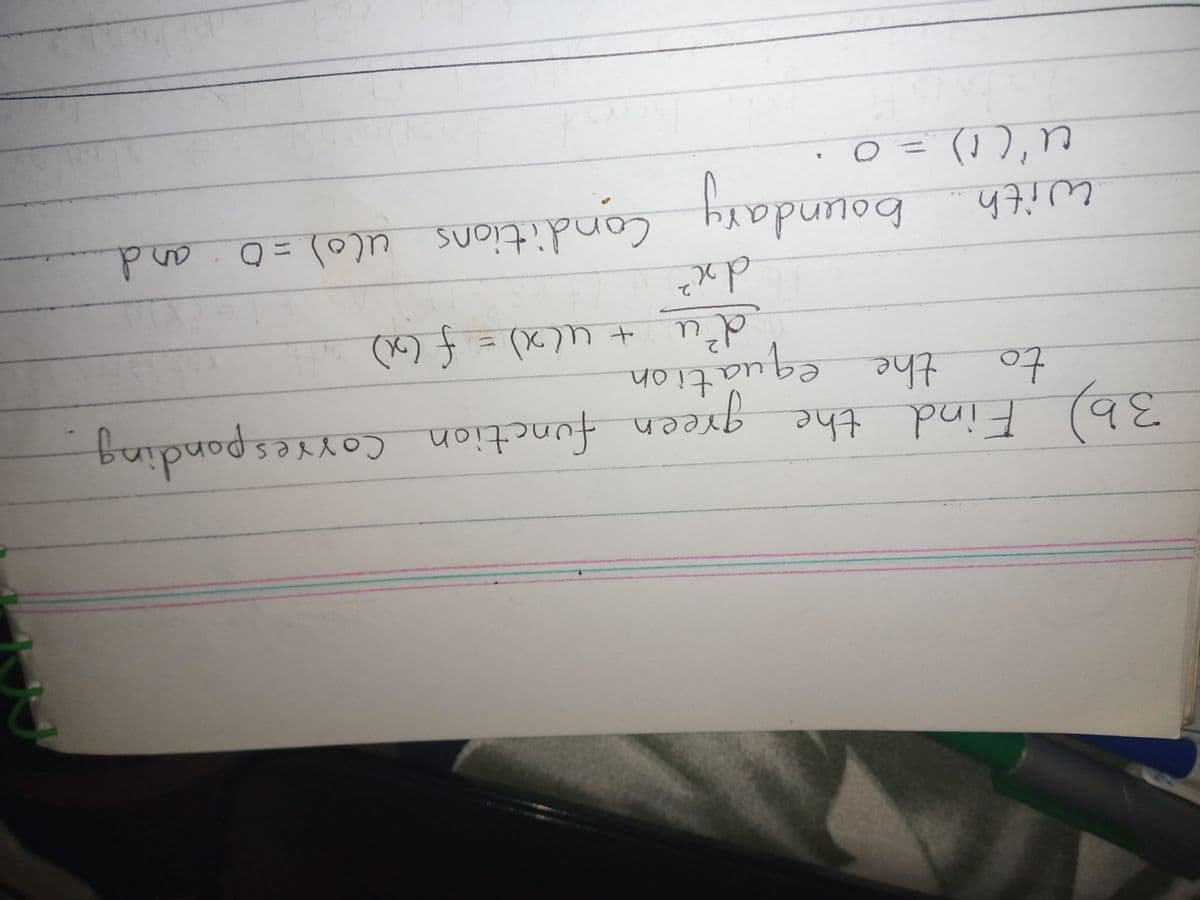 3b) Find the green function corresponding
to the equation
d²u/dx² + u(x) = f(x)
with boundary conditions u(0) = 0 and
u'(1) = 0.